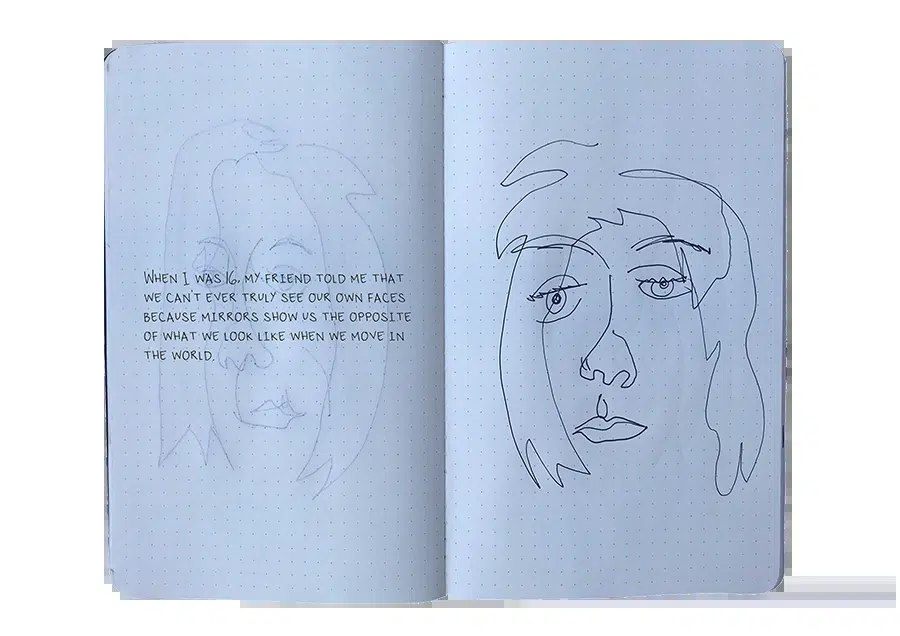 When I was 16, my friend told me that
we can't ever truly see our own faces
because mirrors show us the opposite
of what we look like when we move in
the world.